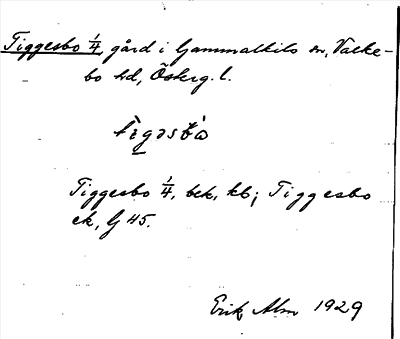 Tiggesbo 1/4 gård i Gammalkils sn, Valke-
bo hd, Österg. l.
tìgəsbò
Tiggesbo 1/4, bek, kb; Tiggesbo
ek, G 45.
Erik Alm 1929